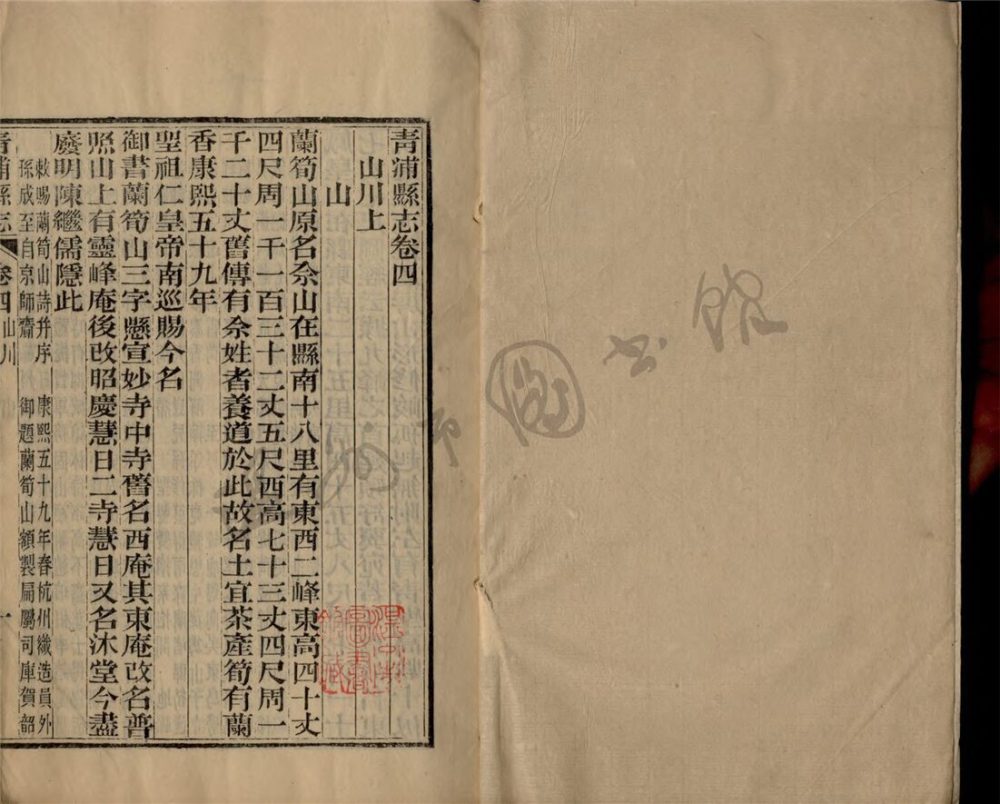 青浦縣志卷四
山川上
山
蘭筍山原名佘山在縣南十八里有東西二峰東高四十丈
四尺周一千一百三十二丈五尺西高七十三丈四尺周一
千二十丈舊傳有佘姓者養道於此故名土宜茶產筍有蘭
香康熙五十九年
聖祖仁皇帝南巡賜今名
御書蘭筍山三字懸宣妙寺中寺舊名西庵其東庵改名普
照山上有靈峰庵後改昭慶慧日二寺慧日又名沐堂今盡
廢明陳繼儒隱此
敕賜蘭筍山詩幷序 康熙五十九年春杭州織造員外
孫成至自京師齎 御題蘭筍山額製扁屬司庫賀韶
青浦縣志 卷四 山川 一
圖書館